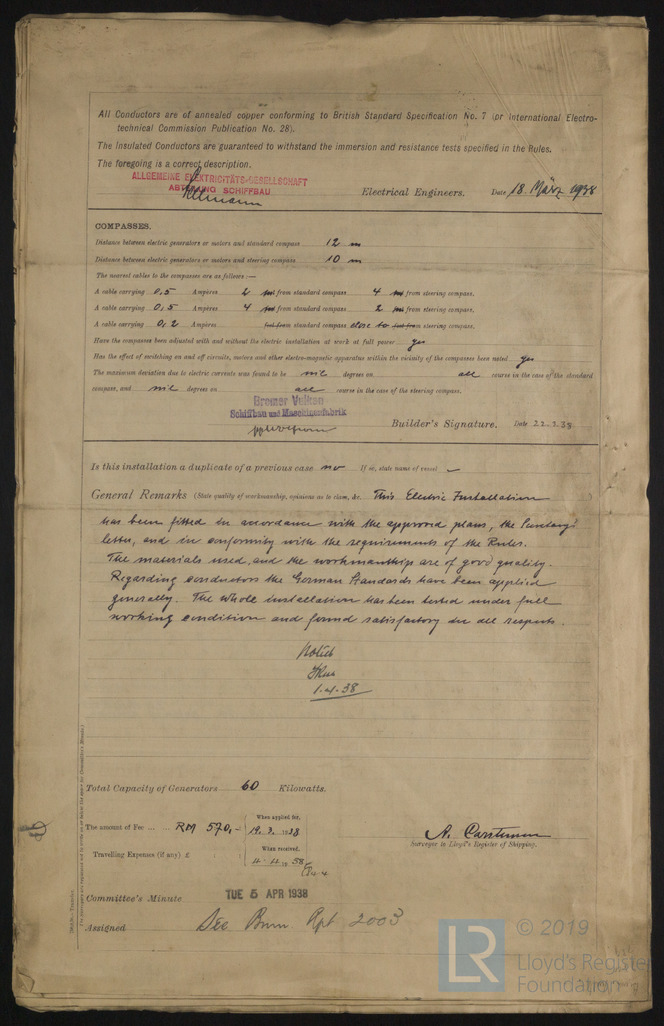 All Conductors are of annealed copper conforming to British Standard Specification No. 7 (or International Electro-
technical Commission Publication No. 28).
The Insulated Conductors are guaranteed to withstand the immersion and resistance tests specified in the Rules.
The foregoing is a correct description.
ALLGEMEINE ELEKTRICITÄTS-GESELLSCHAFT
ABTEILUNG SCHIFFBAU
Electrical Engineers. Date 18. März 1938
COMPASSES.
Distance between electric generators or motors and standard compass 12 m
Distance between electric generators or motors and steering compass 10 m
The nearest cables to the compasses are as follows:—
A cable carrying 0,5 Ampères 2 feet m from standard compass 4 feet m from steering compass.
A cable carrying 0,5 Ampères 4 feet m from standard compass 2 feet m from steering compass.
A cable carrying 0,2 Ampères feet from standard compass close to feet from steering compass.
Have the compasses been adjusted with and without the electric installation at work at full power yes
Has the effect of switching on and off circuits, motors and other electro-magnetic apparatus within the vicinity of the compasses been noted yes
The maximum deviation due to electric currents was found to be nil degrees on all course in the case of the standard
compass, and nil degrees on all course in the case of the steering compass.
Bremer Vulkan
Schiffbau und Maschinenfabrik
Builder's Signature. Date 22.3.38
Is this installation a duplicate of a previous case no If so, state name of vessel —
General Remarks (State quality of workmanship, opinions as to class, &c. This Electric Installation )
has been fitted in accordance with the approved plans, the Secretary's
letter, and in conformity with the requirements of the Rules.
The materials used, and the workmanship are of good quality.
Regarding conductors the German Standards have been applied
generally. The whole installation has been tested under full
working condition and found satisfactory in all respects.
Noted
1.4.38
Total Capacity of Generators 60 Kilowatts.
The amount of Fee ... ... RM 570,- When applied for, 19.3.1938
Travelling Expenses (if any) £ When received, 4.4.1938
A. Carstensen
Surveyor to Lloyd's Register of Shipping.
Committee's Minute TUE 5 APR 1938
Assigned See Brem Rpt 2003
LR
© 2019
Lloyd's Register
Foundation